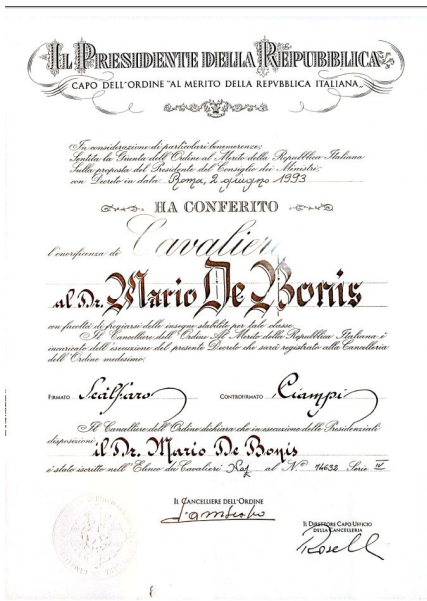 IL PRESIDENTE DELLA REPUBBLICA
CAPO DELL'ORDINE "AL MERITO DELLA REPVBBLICA ITALIANA"
In considerazione di particolari benemerenze;
Sentita la Giunta dell'Ordine al Merito della Repubblica Italiana
Sulla proposta del Presidente del Consiglio dei Ministri;
con Decreto in data Roma, 2 giugno 1993
HA CONFERITO
l'onorificenza di Cavaliere
al Dr. Mario De Bonis
con facoltà di fregiarsi delle insegne stabilite per tale classe.
Il Cancelliere dell'Ordine Al Merito della Repubblica Italiana è
incaricato dell'esecuzione del presente Decreto che sarà registrato alla Cancelleria
dell'Ordine medesimo.
FIRMATO Scàlfaro CONTROFIRMATO Ciampi
Il Cancelliere dell'Ordine dichiara che in esecuzione delle Presidenziali
disposizioni il Dr. Mario De Bonis
è stato iscritto nell'Elenco dei Cavalieri Naz. al N° 14632 Serie IV
IL CANCELLIERE DELL'ORDINE
IL DIRETTORE CAPO UFFICIO
DELLA CANCELLERIA